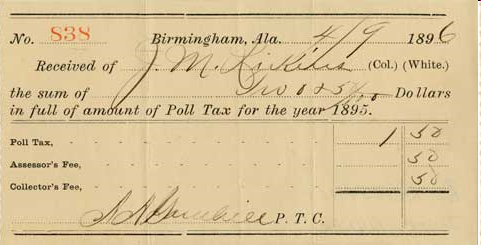 No. 838 Birmingham, Ala. 4/9 1896
Received of J. M. (Col.) (White.)
the sum of Two & 50/100 Dollars
in full of amount of Poll Tax for the year 1895.
Poll Tax, - - - - 1 50
Assessor's Fee, - - - - 50
Collector's Fee, - - - - 50
P. T. C.